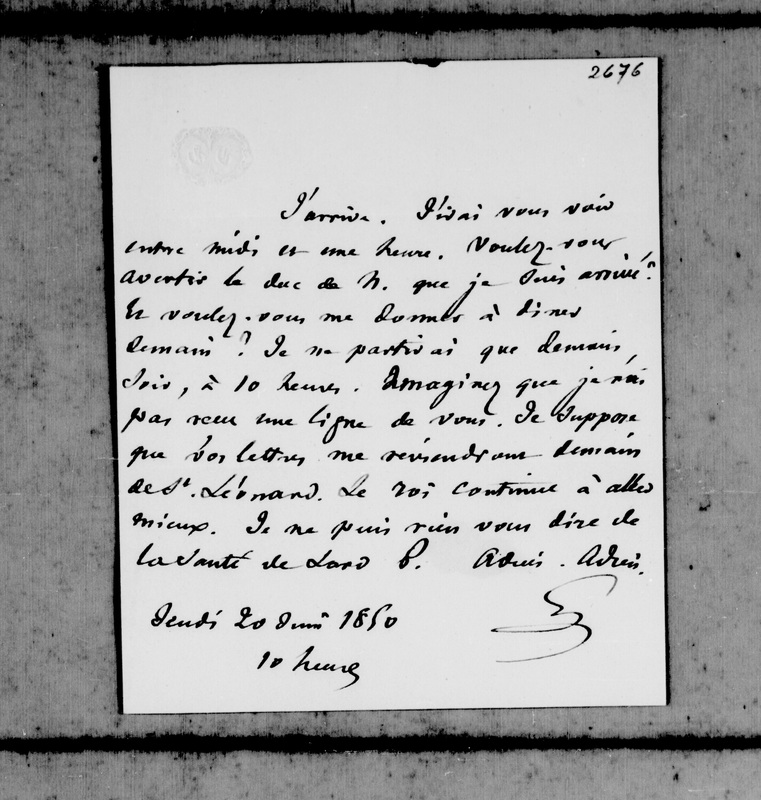 2676
J'arrive. J'irai vous voir
entre midi et une heure. Voulez-vous
avertir le duc de N. que je suis arrivé?
Et voulez-vous me donner à diner
demain? Je ne partirai que demain
soir, à 10 heures. Imaginez que je n'ai
pas reçu une ligne de vous. Je suppose
que vos lettres me reviendront demain
de St. Léonard. Le roi continue à aller
mieux. Je ne puis rien vous dire de
la santé de Lord P. Adieu. Adieu.
Jeudi 20 Juin 1850
10 heures